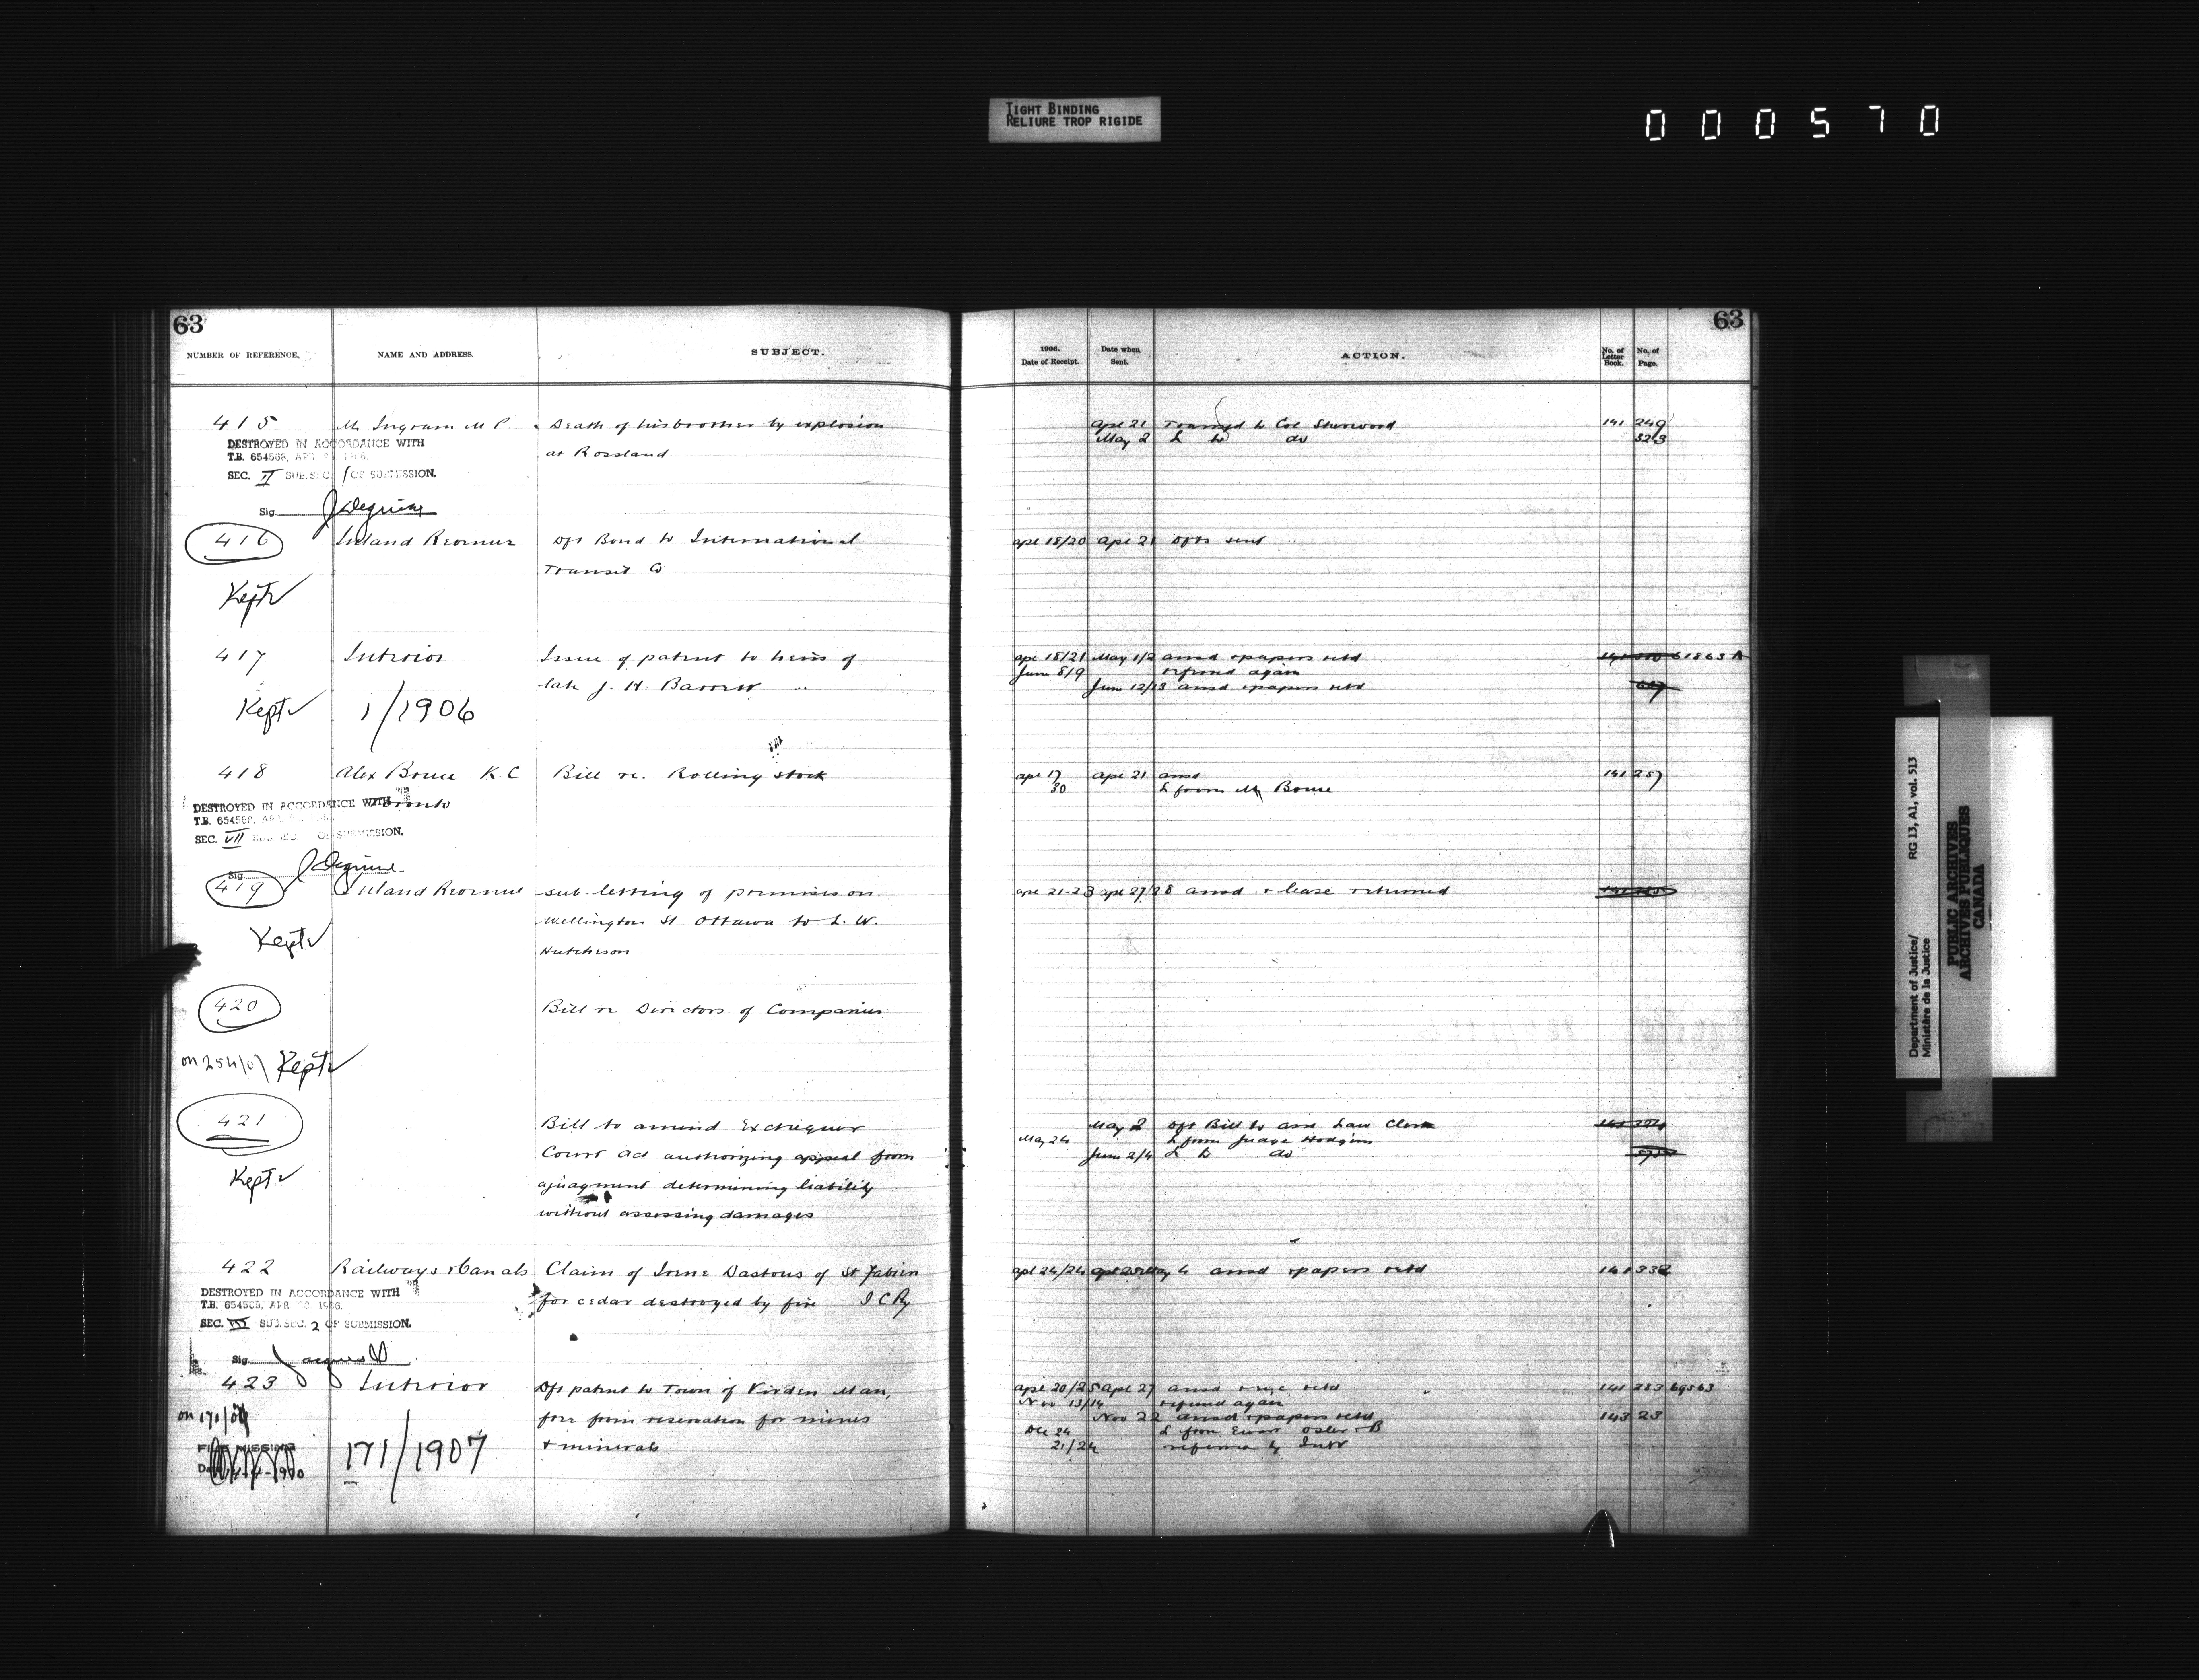 TIGHT BINDING
RELIURE TROP RIGIDE
000570
63
63
NUMBER OF REFERENCE.
NAME AND ADDRESS.
SUBJECT.
1906.
Date of Receipt.
Date when Sent.
ACTION.
No. of Letter Book.
No. of Page.
415 Mr Ingram M P Death of his brother by explosion
at Rossland
Apl 21 to Col Sherwood 141 249
May 2 L to do 323
DESTROYED IN ACCORDANCE WITH
T.B. 654568, APR
SEC. VI SUB.SEC. 1 OF SUBMISSION.
Sig
416 Inland Revenue Dft Bond to International
Transit Co
Apl 18/20 Apl 21 Dfts sent
Kept
417 Interior Issue of patent to heirs of
late J. H. Barrett
Apl 18/21 May 1/2 ansd & papers retd 61863 A
June 8/9 refered again
June 12/13 ansd & papers retd
Kept 1/1906
418 Alex Bruce K.C Bill re. Rolling stock
Toronto
Apl 17 Apl 21 ansd 141 257
30 L from Mr Bruce
DESTROYED IN ACCORDANCE WITH
T.B. 654568,
SEC. VII SUB.SEC. OF SUBMISSION.
Sig
419 Inland Revenue sub-letting of premises on
Wellington St Ottawa to L. W.
Hutcheson
Apl 21-23 Apl 27/28 ansd & lease returned
Kept
420 Bill re Directors of Companies
on 254/07 Kept
421 Bill to amend Exchequer
Court Act authorizing appeal from
a judgment determining liability
without assessing damages
May 2 Dft Bill to asst Law Clerk
May 24 L from Judge Hodgins
June 2/4 L to do
Kept
422 Railways & Canals Claim of Dastous of St Fabien
for cedar destroyed by fire I C Ry
Apl 24/24 May 4 ansd & papers retd 141 332
DESTROYED IN ACCORDANCE WITH
T.B. 654565, APR
SEC. III SUB.SEC. 2 OF SUBMISSION.
Sig
423 Interior Dft patent to Town of Virden Man,
free from reservation for mines
& minerals
Apl 20/25 Apl 27 ansd retd 141 283 69563
Nov 13/14 refered again
Nov 22 ansd & papers retd 143 23
Dec 24 L from Ewart Osler & B
21/24
on 171/07
FILE MISSING
171/1907
Department of Justice/
Ministère de la Justice
RG 13, A1, vol. 513
PUBLIC ARCHIVES
ARCHIVES PUBLIQUES
CANADA